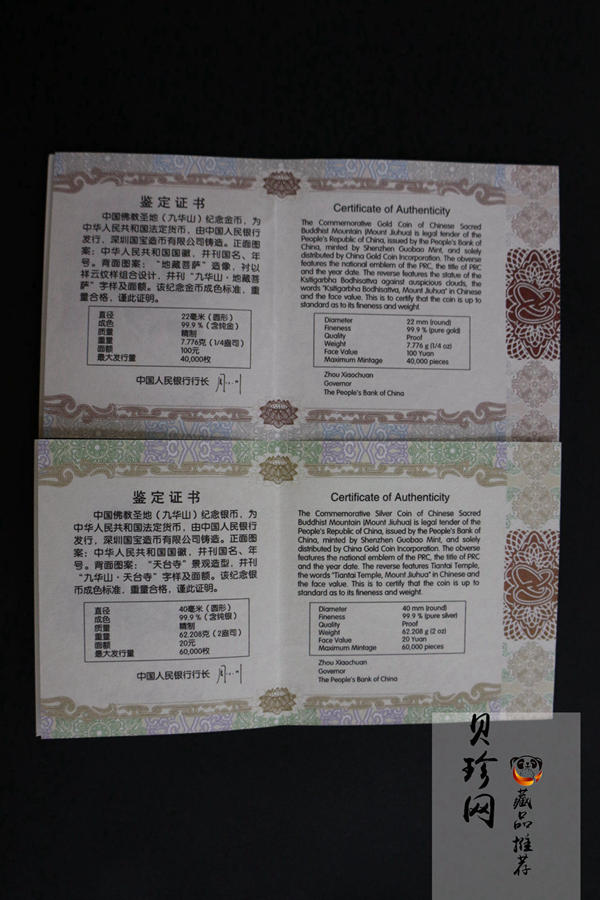 鉴定证书
中国佛教圣地（九华山）纪念金币，为
中华人民共和国法定货币，由中国人民银行
发行，深圳国宝造币有限公司铸造。正面图
案：中华人民共和国国徽，并刊国名、年
号。背面图案：“地藏菩萨”造像，衬以
祥云纹样组合设计，并刊“九华山·地藏菩
萨”字样及面额。该纪念金币成色标准，重
量合格，谨此证明。
直径 22毫米（圆形）
成色 99.9％（含纯金）
质量 精制
重量 7.776克（1/4盎司）
面额 100元
最大发行量 40,000枚
中国人民银行行长
Certificate of Authenticity
The Commemorative Gold Coin of Chinese Sacred
Buddhist Mountain (Mount Jiuhua) is legal tender of the
People's Republic of China, issued by the People's Bank of
China, minted by Shenzhen Guobao Mint, and solely
distributed by China Gold Coin Incorporation. The obverse
features the national emblem of the PRC, the title of PRC
and the year date. The reverse features the statue of the
Ksitigarbha Bodhisattva against auspicious clouds, the
words "Ksitigarbha Bodhisattva, Mount Jiuhua" in Chinese
and the face value. This is to certify that the coin is up to
standard as to its fineness and weight.
Diameter 22 mm (round)
Fineness 99.9 % (pure gold)
Quality Proof
Weight 7.776 g (1/4 oz)
Face Value 100 Yuan
Maximum Mintage 40,000 pieces
Zhou Xiaochuan
Governor
The People's Bank of China
鉴定证书
中国佛教圣地（九华山）纪念银币，为
中华人民共和国法定货币，由中国人民银行
发行，深圳国宝造币有限公司铸造。正面图
案：中华人民共和国国徽，并刊国名、年
号。背面图案：“天台寺”景观造型，并刊
“九华山·天台寺”字样及面额。该纪念银
币成色标准，重量合格，谨此证明。
直径 40毫米（圆形）
成色 99.9％（含纯银）
质量 精制
重量 62.208克（2盎司）
面额 20元
最大发行量 60,000枚
中国人民银行行长
Certificate of Authenticity
The Commemorative Silver Coin of Chinese Sacred
Buddhist Mountain (Mount Jiuhua) is legal tender of the
People's Republic of China, issued by the People's Bank of
China, minted by Shenzhen Guobao Mint, and solely
distributed by China Gold Coin Incorporation. The obverse
features the national emblem of the PRC, the title of PRC
and the year date. The reverse features Tiantai Temple,
the words "Tiantai Temple, Mount Jiuhua" in Chinese and
the face value. This is to certify that the coin is up to
standard as to its fineness and weight.
Diameter 40 mm (round)
Fineness 99.9 % (pure silver)
Quality Proof
Weight 62.208 g (2 oz)
Face Value 20 Yuan
Maximum Mintage 60,000 pieces
Zhou Xiaochuan
Governor
The People's Bank of China
贝珍网
藏品推荐